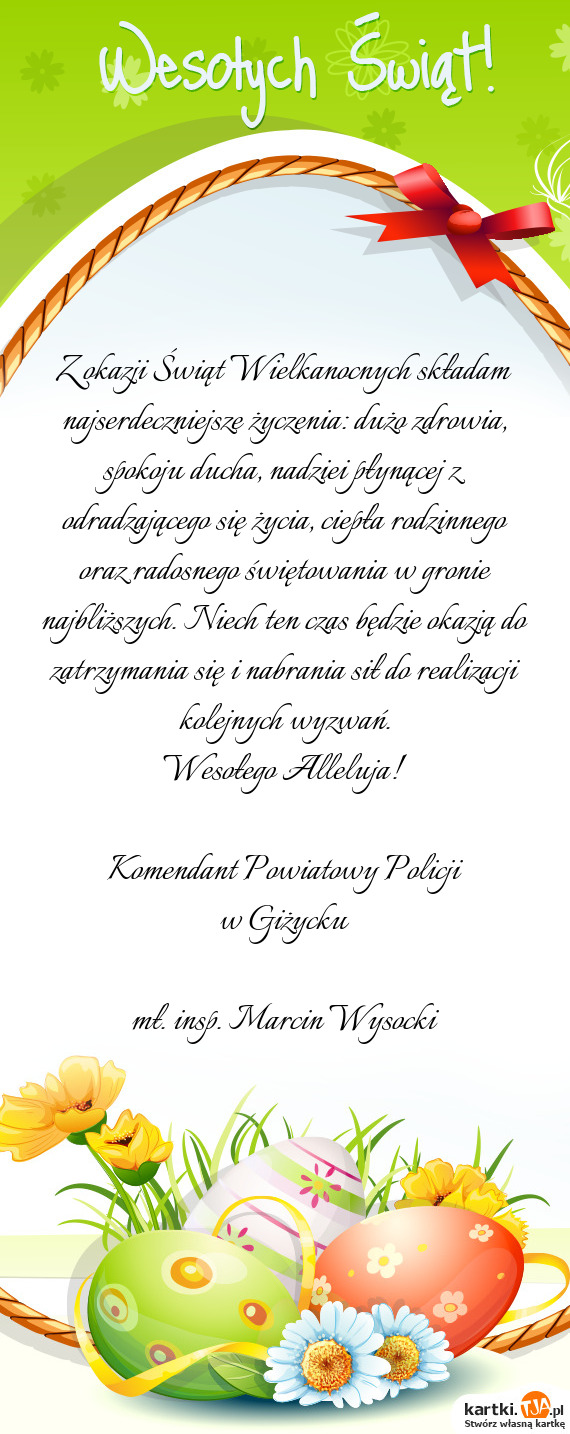 Wesołych Świąt!
Z okazji Świąt Wielkanocnych składam
najserdeczniejsze życzenia: dużo zdrowia,
spokoju ducha, nadziei płynącej z
odradzającego się życia, ciepła rodzinnego
oraz radosnego świętowania w gronie
najbliższych. Niech ten czas będzie okazją do
zatrzymania się i nabrania sił do realizacji
kolejnych wyzwań.
Wesołego Alleluja!
Komendant Powiatowy Policji
w Giżycku
mł. insp. Marcin Wysocki
kartki.TJA.pl
Stwórz własną kartkę